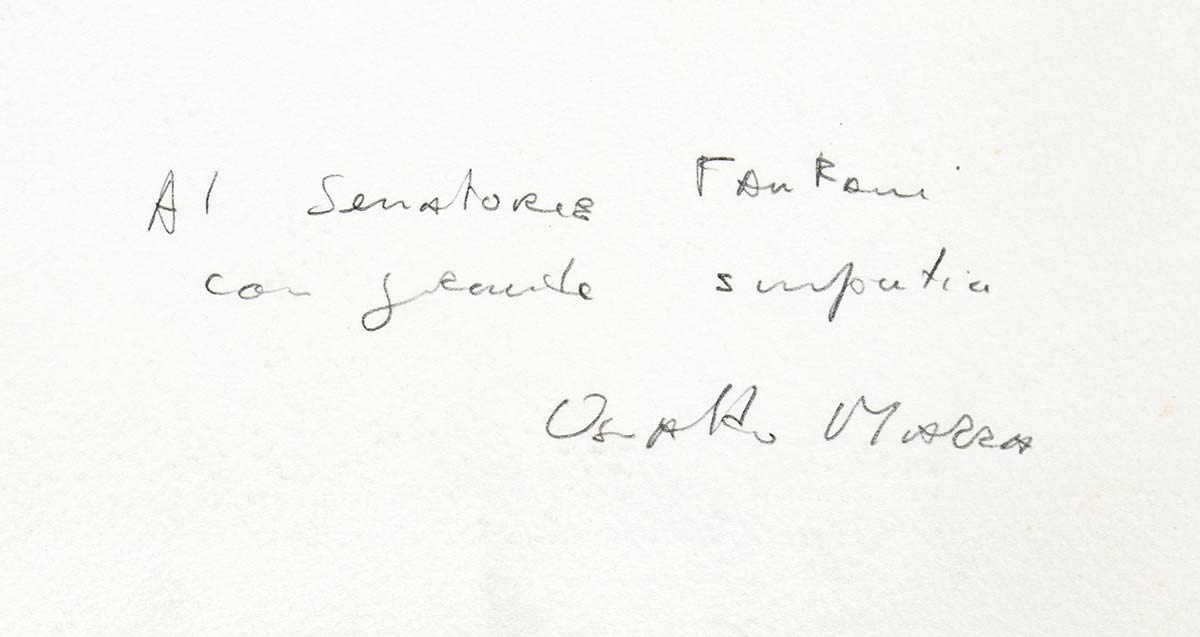 Al Senatore Fanfani
con grande simpatia
Osvaldo Marra